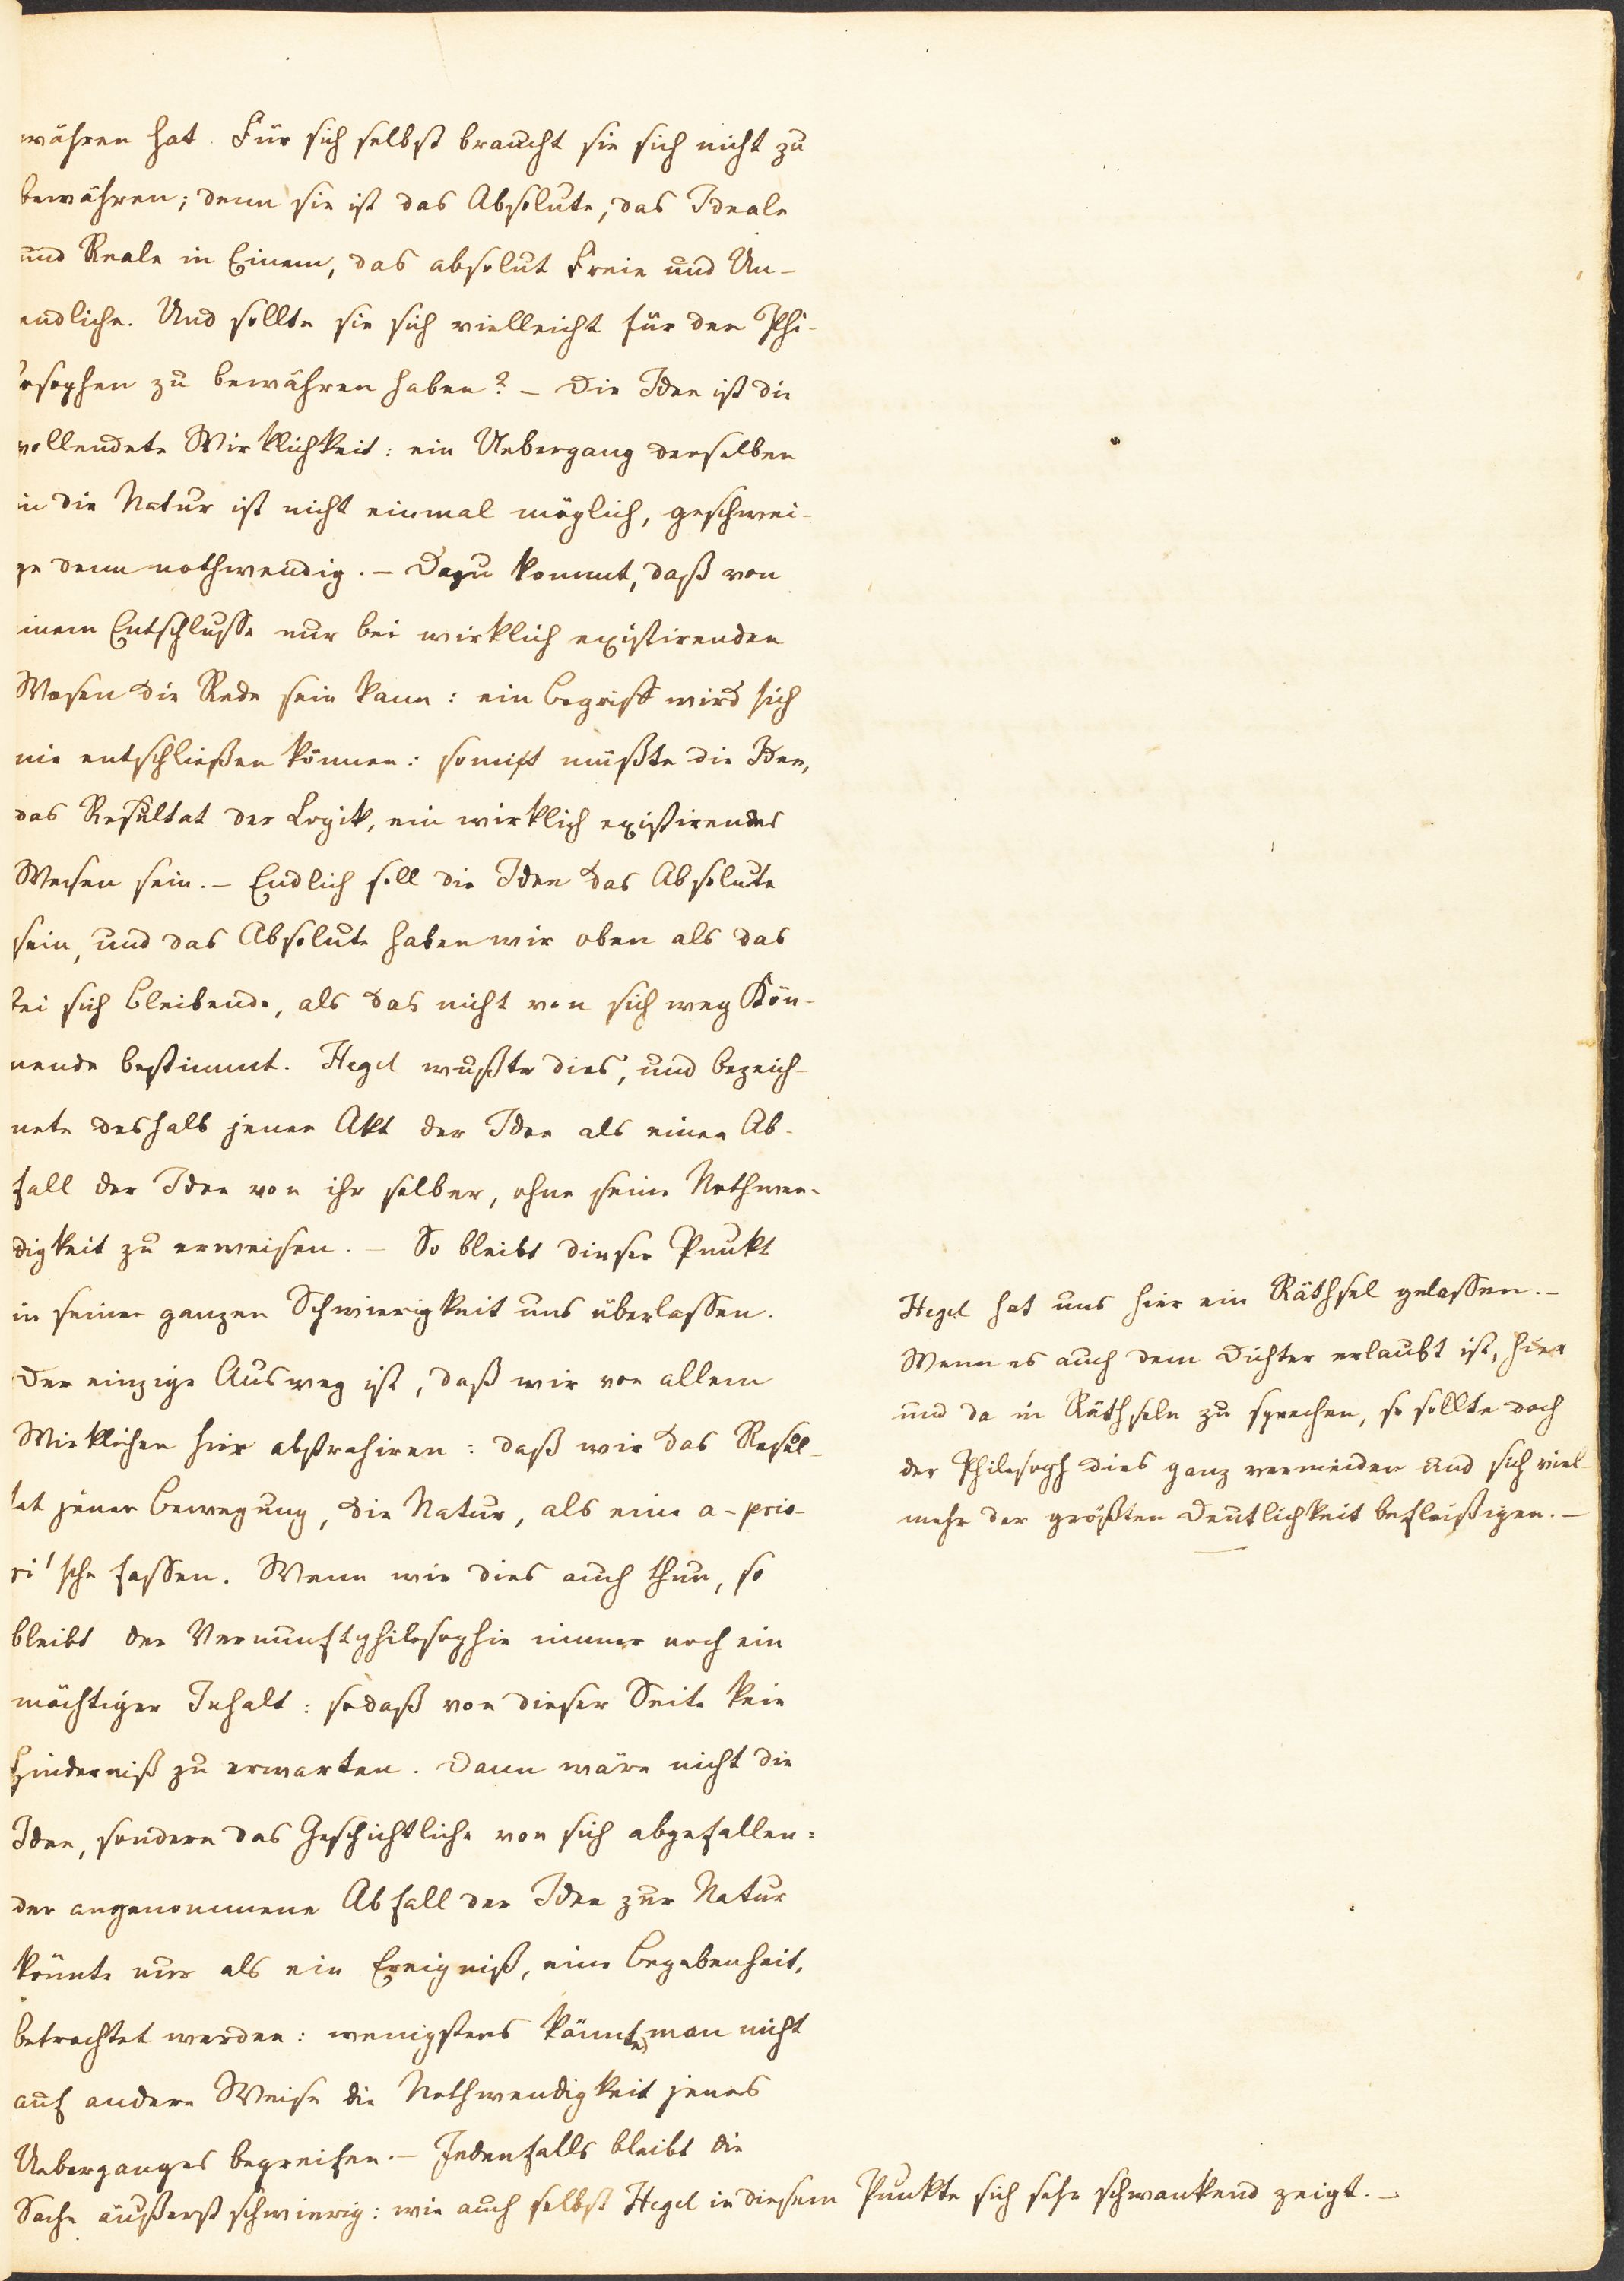 währen hat. Für sich selbst braucht sie sich nicht zu
bewähren; denn sie ist das Absolute, das Ideale
und Reale in Einem, das absolut Freie und Un-
endliche. Und sollte sie sich vielleicht für den Phi-
losophen zu bewähren haben? – Die Idee ist die
vollendete Wirklichkeit: ein Uebergang derselben
in die Natur ist nicht einmal möglich, geschwei-
ge denn nothwendig. – Dazu kommt, daß von
einem Entschlusse nur bei wirklich existirenden
Wesen die Rede sein kann: ein Begriff wird sich
nie entschließen können: somit müßte die Idee,
das Resultat der Logik, ein wirklich existirendes
Wesen sein. – Endlich soll die Idee das Absolute
sein, und das Absolute haben wir oben als das
bei sich Bleibende, als das nicht von sich weg Kön-
nende bestimmt. Hegel wußte dies, und bezeich-
nete deshalb jenen Akt der Idee als einen Ab-
fall der Idee von ihr selber, ohne seine Nothwen-
digkeit zu erweisen. – So bleibt dieser Punkt
in seiner ganzen Schwierigkeit uns überlassen.
Der einzige Ausweg ist, daß wir von allem
Wirklichen hier abstrahiren: daß wir das Resul-
tat jener Bewegung, die Natur, als eine a-prio-
ri'sche fassen. Wenn wir dies auch thun, so
bleibt der Vernunftphilosophie immer noch ein
mächtiger Inhalt: sodaß von dieser Seite kein
Hinderniß zu erwarten. Dann wäre nicht die
Idee, sondern das Geschichtliche von sich abgefallen:
der angenommene Abfall der Idee zur Natur
könnte nur als ein Ereigniß, eine Begebenheit,
betrachtet werden: wenigstens könnte man nicht
auf andere Weise die Nothwendigkeit jenes
Ueberganges begreifen. – Jedenfalls bleibt die
Sache äußerst schwierig: wie auch selbst Hegel in diesem Punkte sich sehr schwankend zeigt. –
Hegel hat uns hier ein Räthsel gelassen. –
Wenn es auch dem Dichter erlaubt ist, hier
und da in Räthseln zu sprechen, so sollte doch
der Philosoph dies ganz vermeiden und sich viel-
mehr der größten Deutlichkeit befleißigen. –